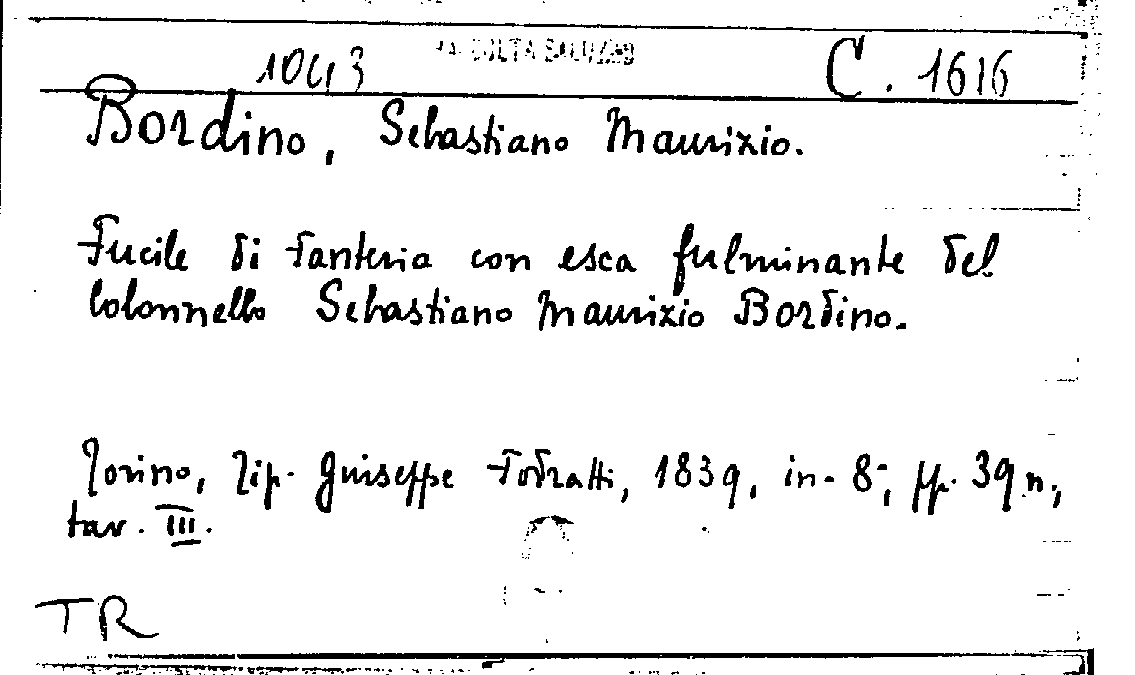 RACCOLTA SALUZZO
1043 C. 1616
Bordino, Sebastiano Maurizio.
Fucile di fanteria con esca fulminante del
Colonnello Sebastiano Maurizio Bordino.
Torino, Tip. Guiseppe Fodratti, 1839, in-8°, pp. 39 n.,
tav. III.
TR